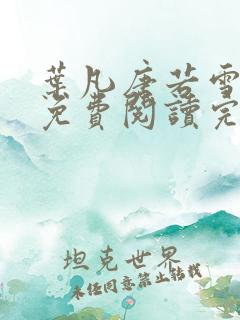 葉凡唐若雪
免費閱讀完
坦克世界
未经同意禁止转载